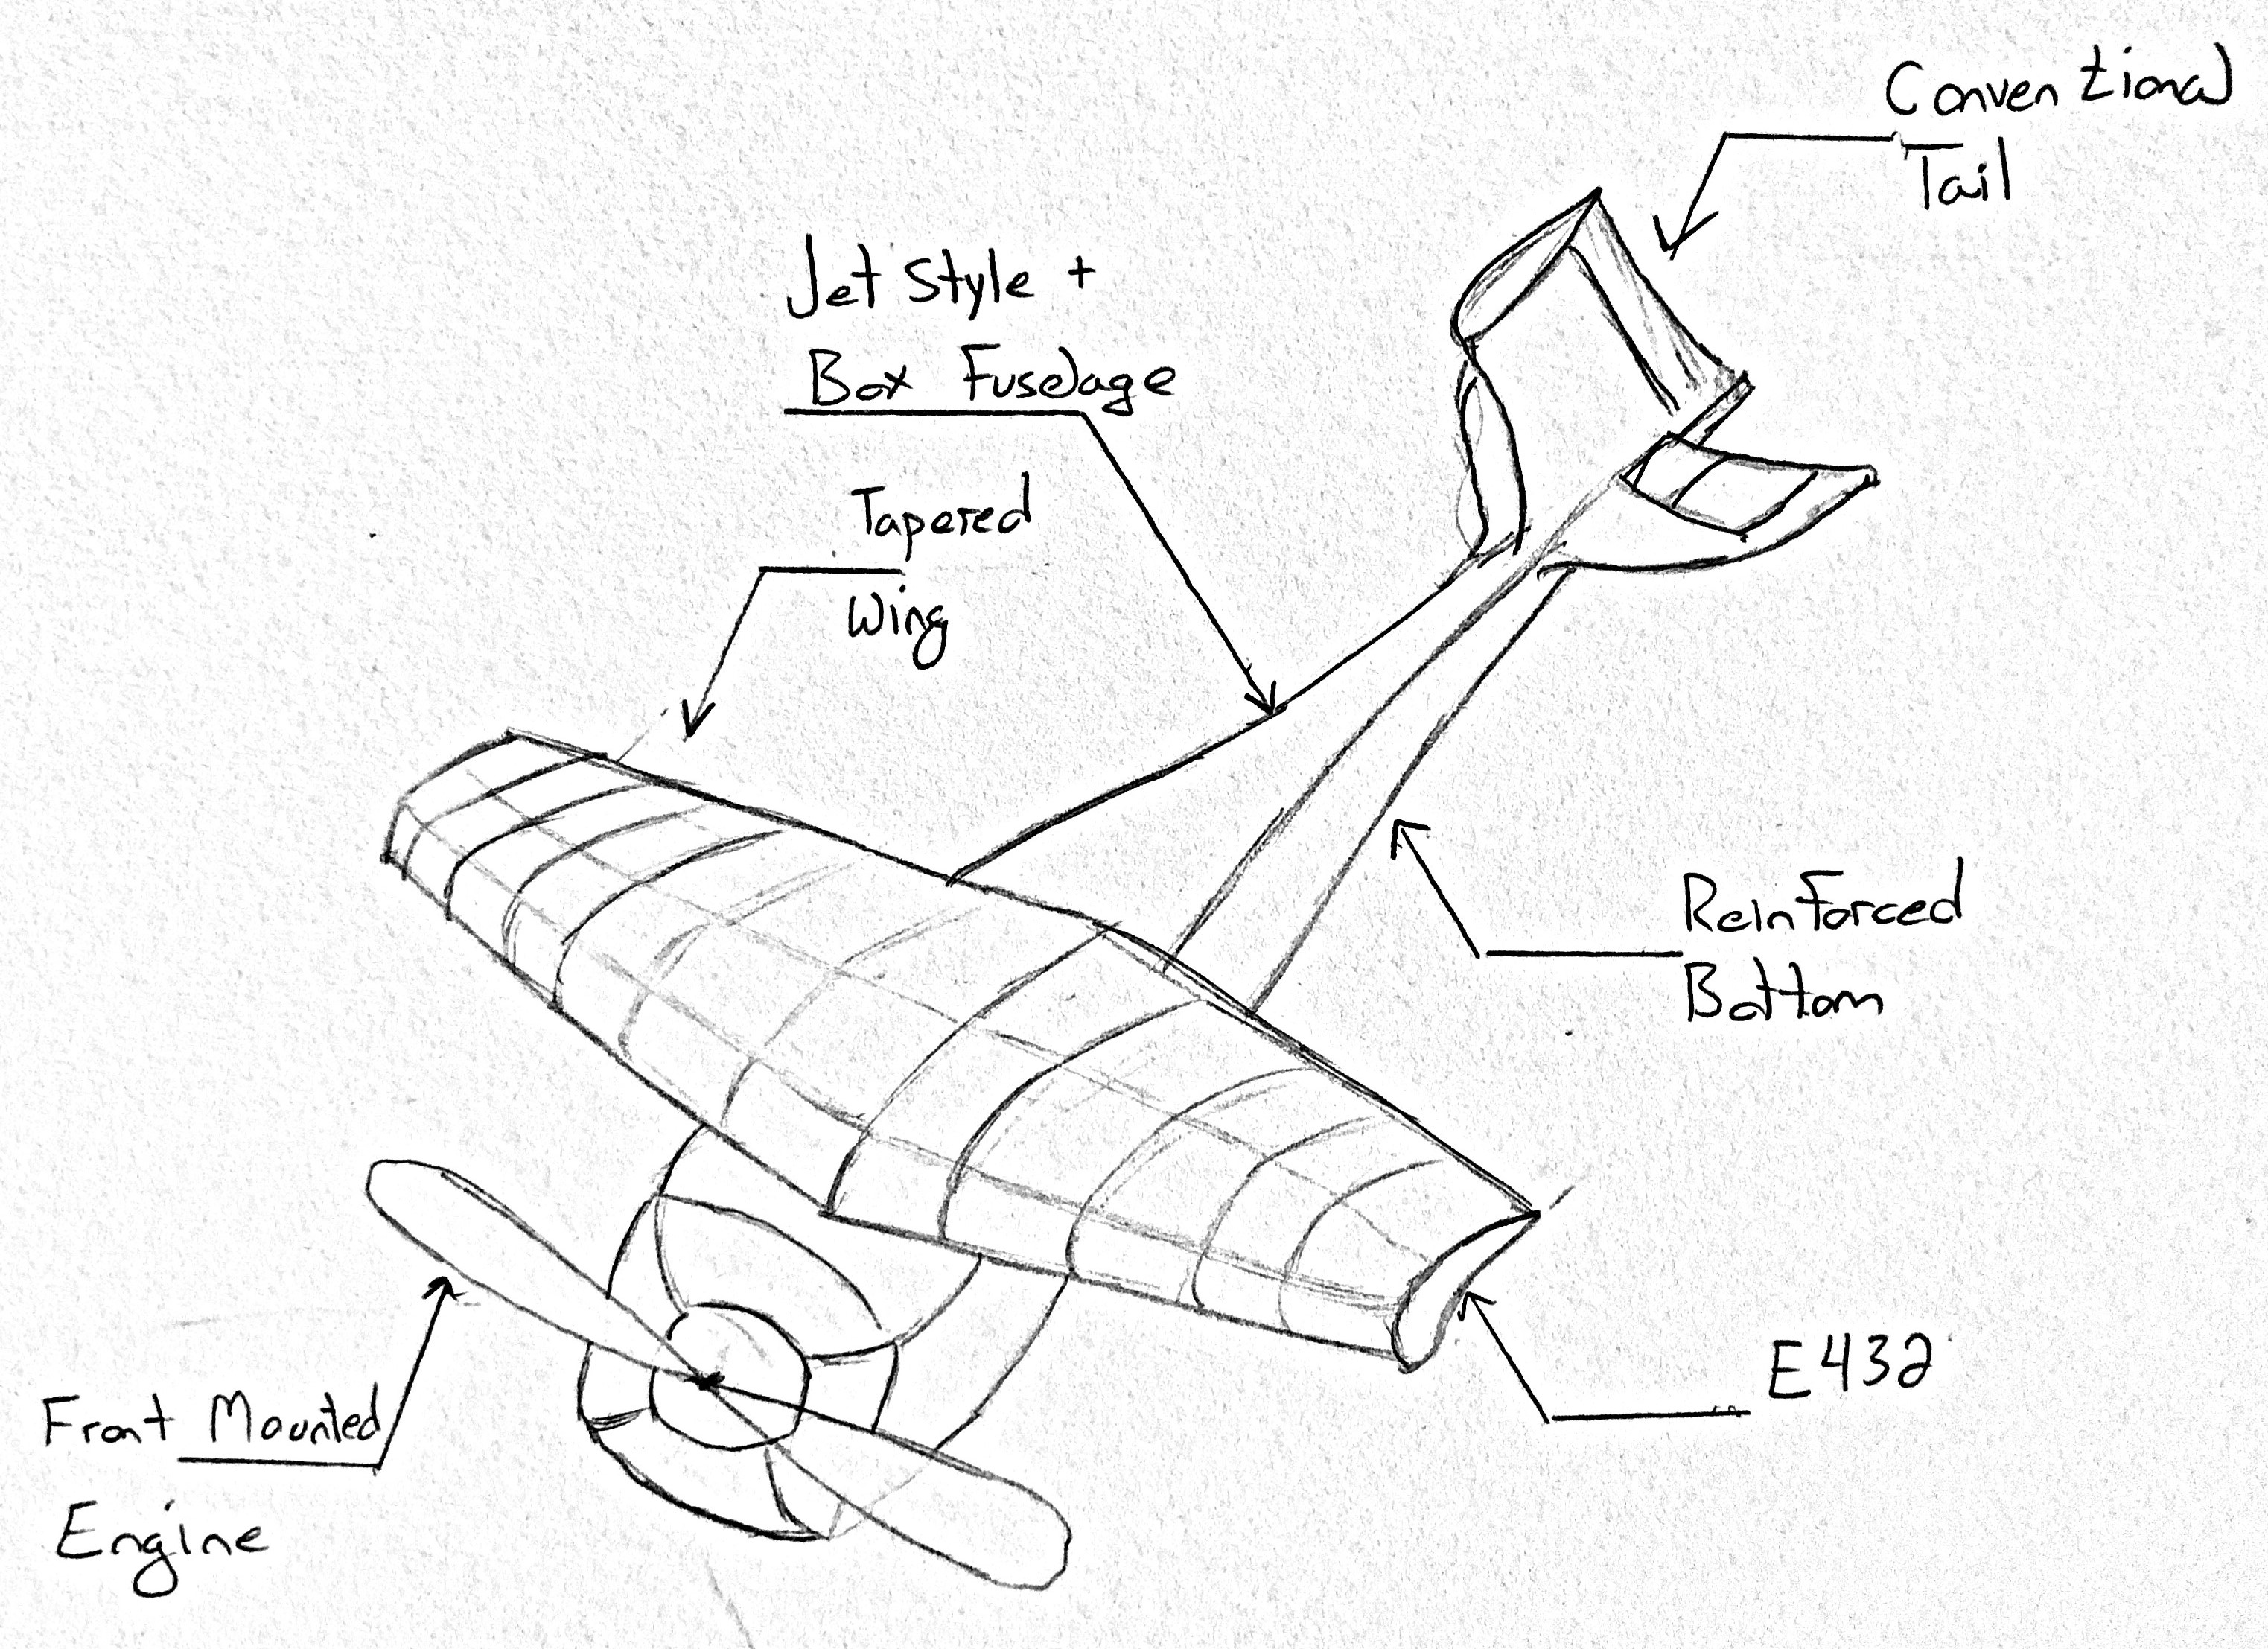 Conventional
Tail
Jet Style +
Box Fuselage
Tapered
Wing
Reinforced
Bottom
E432
Front Mounted
Engine